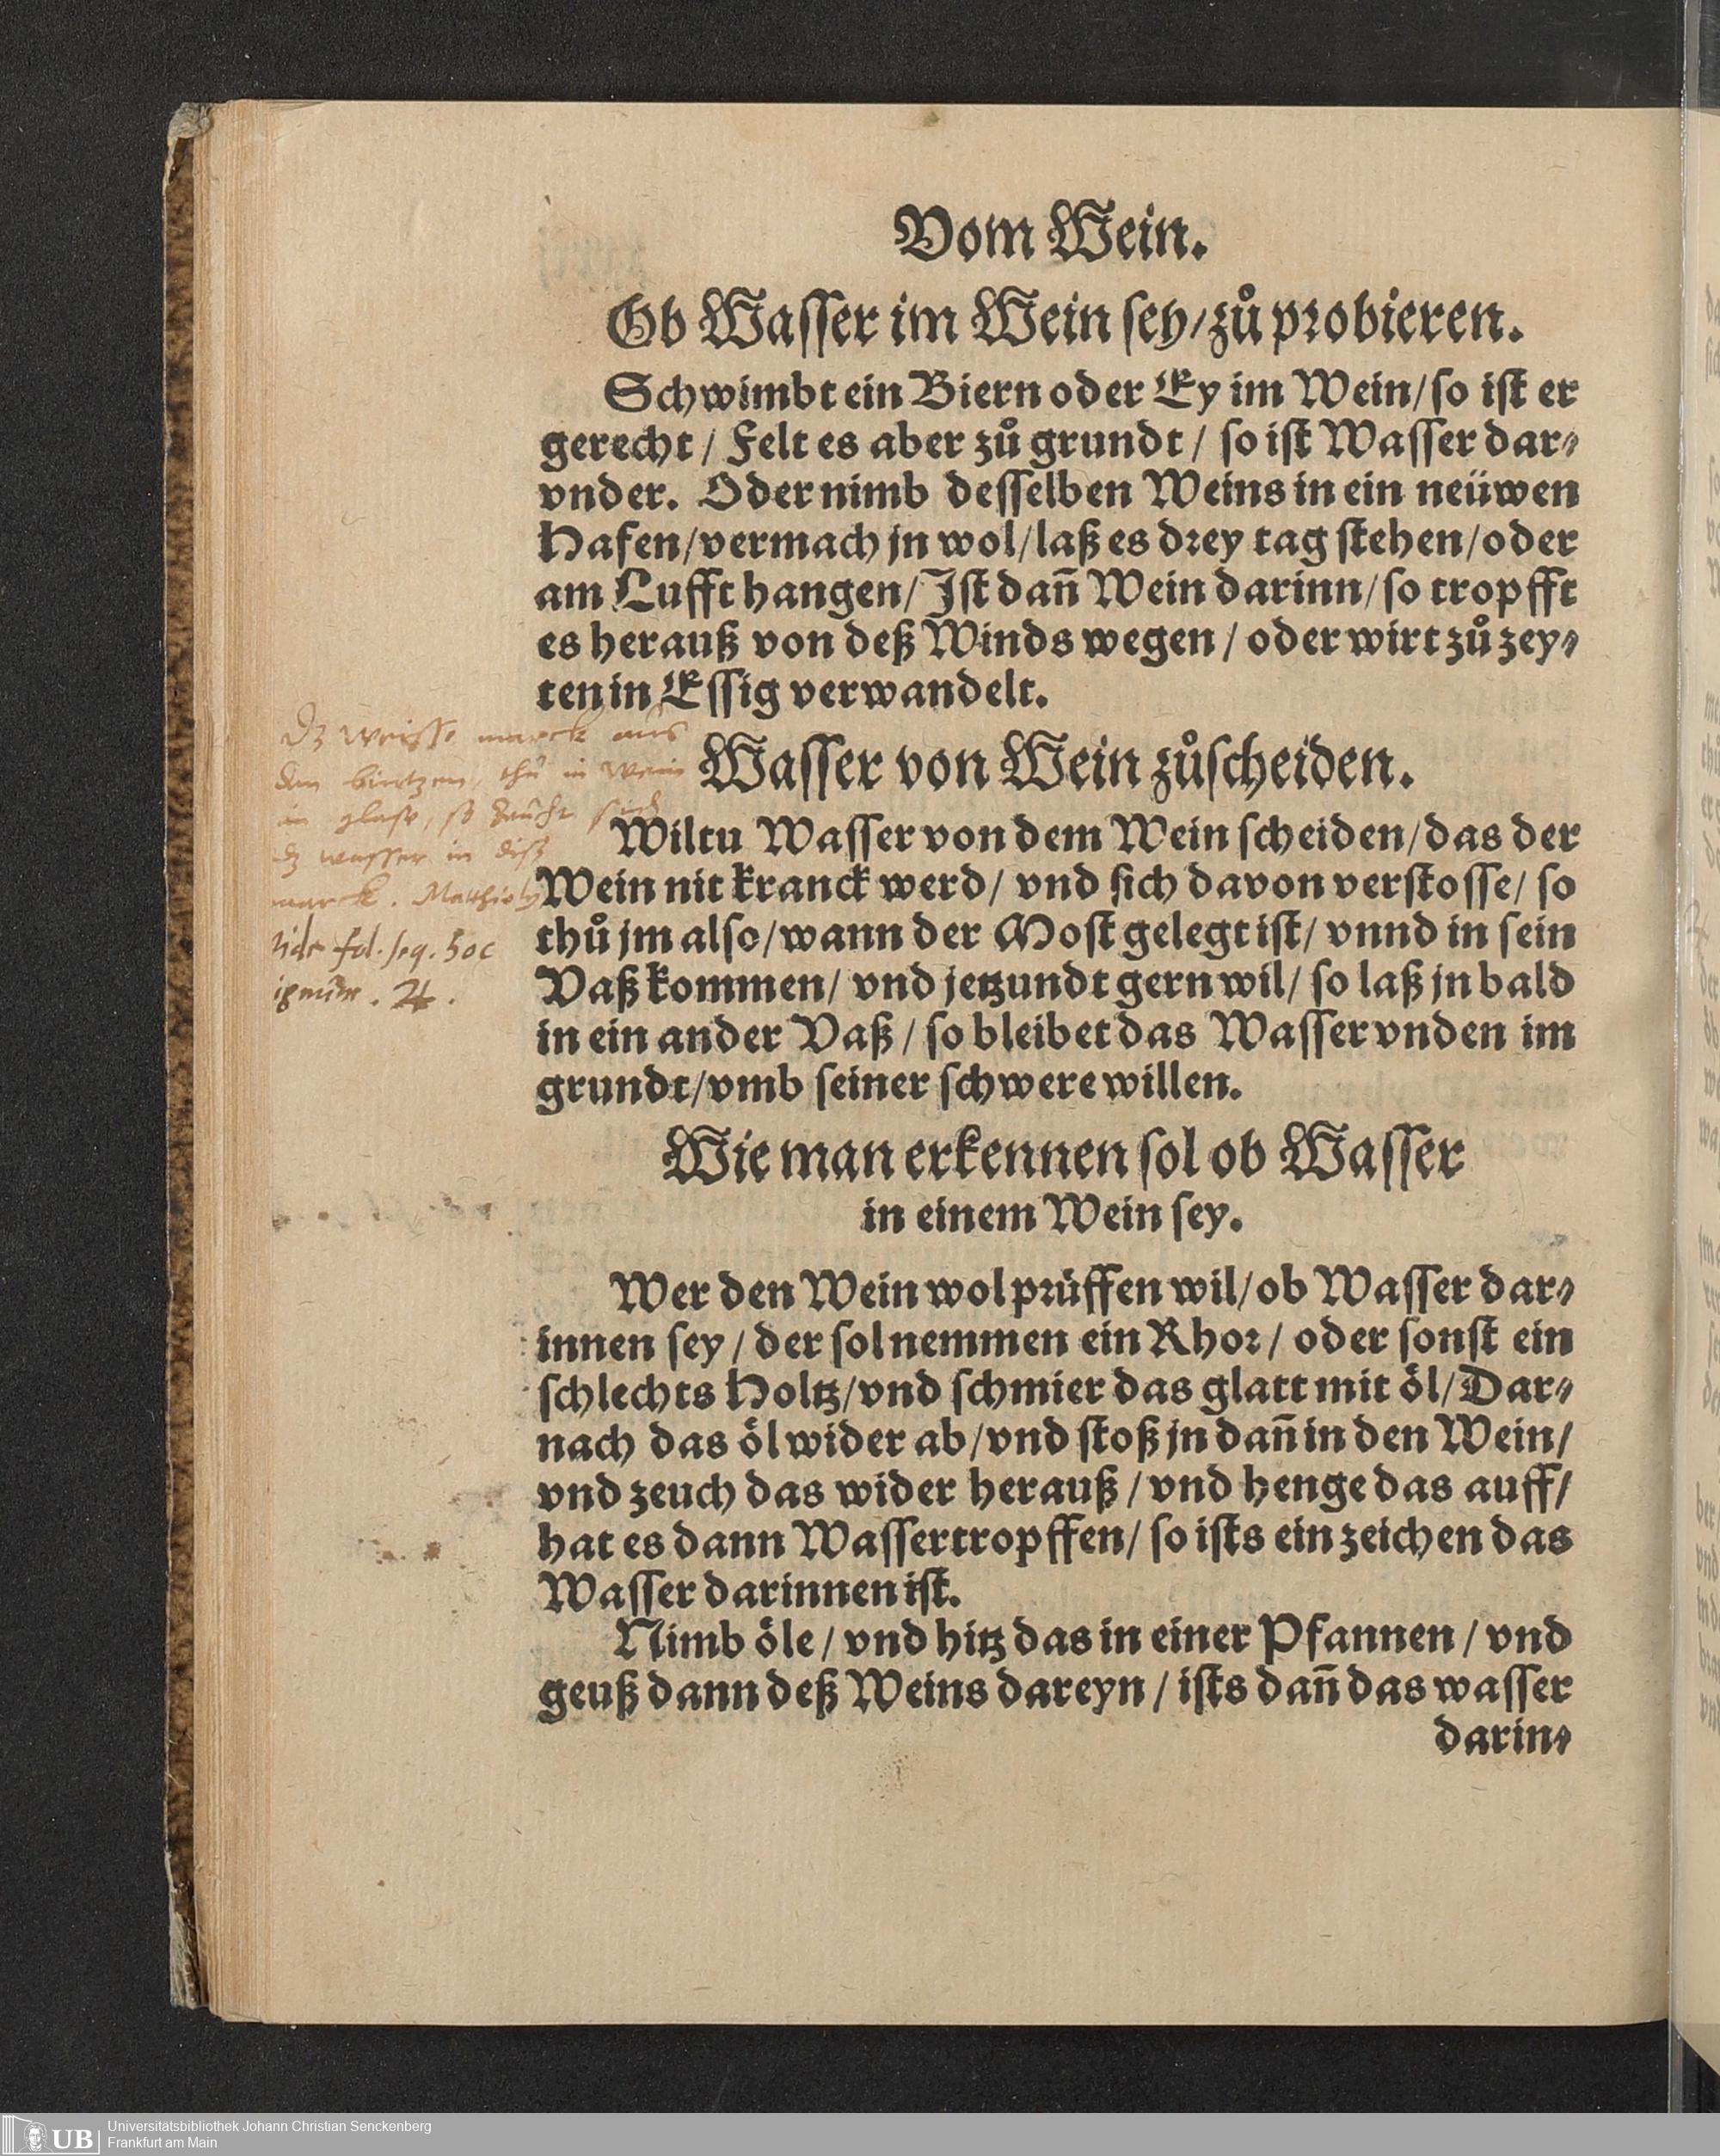 Vom Wein.
Ob Waſſer im Wein ſey/zů probieren.
Schwimbt ein Biern oder Ey im Wein/ſo iſt er
gerecht / Felt es aber zů grundt / ſo iſt Waſſer dar⸗
vnder. Oder nimb deſſelben Weins in ein neüwen
Hafen/vermach jn wol/laß es drey tag ſtehen/oder
am Lufft hangen/Iſt dañ Wein darinn/ſo tropfft
es herauß von deß Winds wegen / oder wirt zů zey⸗
ten in Eſſig verwandelt.
Waſſer von Wein zůſcheiden.
dz weiſſe marck aus
den bintzen, thů in Wein
in glaſe, ſo
dz waſſer in diß
marck. Matthioly
fol. ſeq. hoc
ſignum. ♃.
Wiltu Waſſer von dem Wein ſcheiden/das der
Wein nit kranck werd/ vnd ſich davon verſtoſſe/ ſo
thů jm alſo/wann der Moſt gelegt iſt/ vnnd in ſein
Vaß kommen/ vnd jetzundt gern wil/ ſo laß jn bald
in ein ander Vaß / ſo bleibet das Waſſer vnden im
grundt/vmb ſeiner ſchwere willen.
Wie man erkennen ſol ob Waſſer
in einem Wein ſey.
Wer den Wein wol prüffen wil/ob Waſſer dar⸗
innen ſey / der ſol nemmen ein Rhor / oder ſonſt ein
ſchlechts Holtz/vnd ſchmier das glatt mit öl/Dar⸗
nach das öl wider ab/vnd ſtoß jn dañ in den Wein/
vnd zeuch das wider herauß / vnd henge das auff/
hat es dann Waſſertropffen/ ſo iſts ein zeichen das
Waſſer darinnen iſt.
Nimb öle / vnd hitz das in einer Pfannen / vnd
geuß dann deß Weins dareyn / iſts dañ das waſſer
darin⸗
UB Universitätsbibliothek Johann Christian Senckenberg
Frankfurt am Main